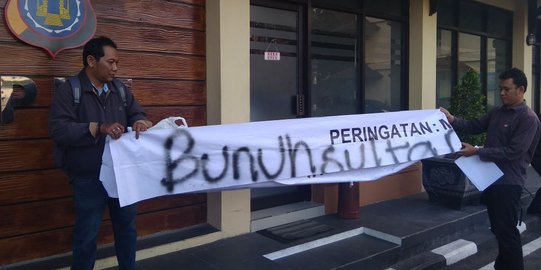 PERINGATAN :
Bunuh sulta